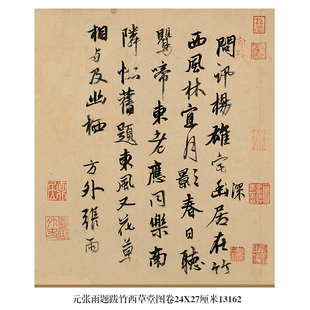 問訊楊雄宅幽居在竹
深
西風林宜月影春日聽
鶯啼東老應同樂南
隣悵舊題東風又花草
相与及幽栖 方外張雨
元张雨题跋竹西草堂图卷24X27厘米13162